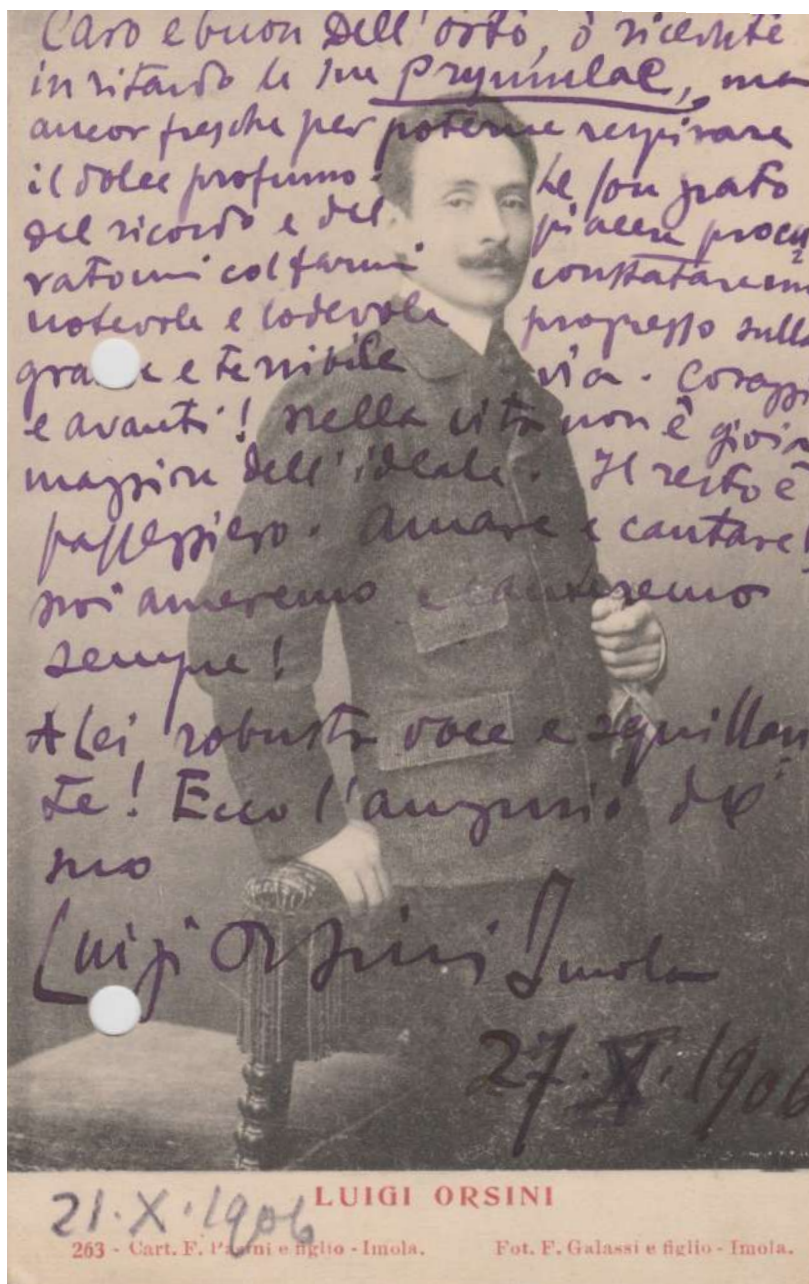 Caro e buon Dell'orto, ò ricevute
in ritardo le sue Prymulae, ma
ancor fresche per poterne respirare
il dolce profumo. Le son grato
del ricordo e del piacere procu
ratomi col farmi constatare un
notevole e lodevole progresso sulla
grande e terribile via. Coraggi
e avanti! Nella vita non è gioia
maggiore dell'ideale. Il resto è
passeggiero. Amare e cantare!
noi ameremo e canteremo
sempre!
A Lei robusta voce e squillan
te! Ecco l'augurio del
suo
Luigi Orsini Imola
27.X.1906
LUIGI ORSINI
21.X.1906
263 - Cart. F. Pasini e figlio - Imola. Fot. F. Galassi e figlio - Imola.